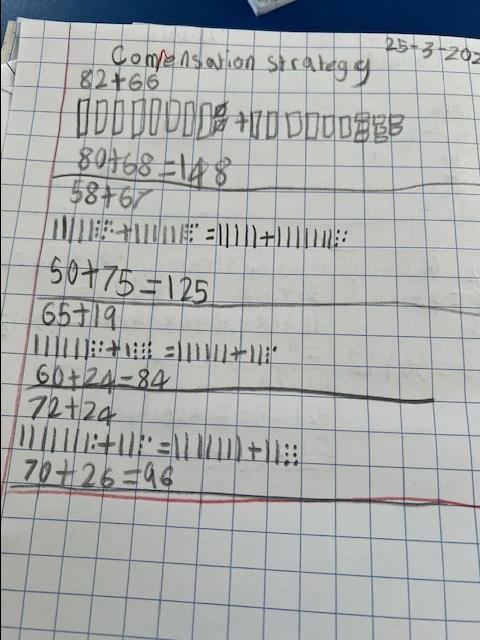 25-3-202
Compensation strategy
82+66
80+68=148
58+67
50+75=125
65+19
60+24=84
72+24
70+26=96